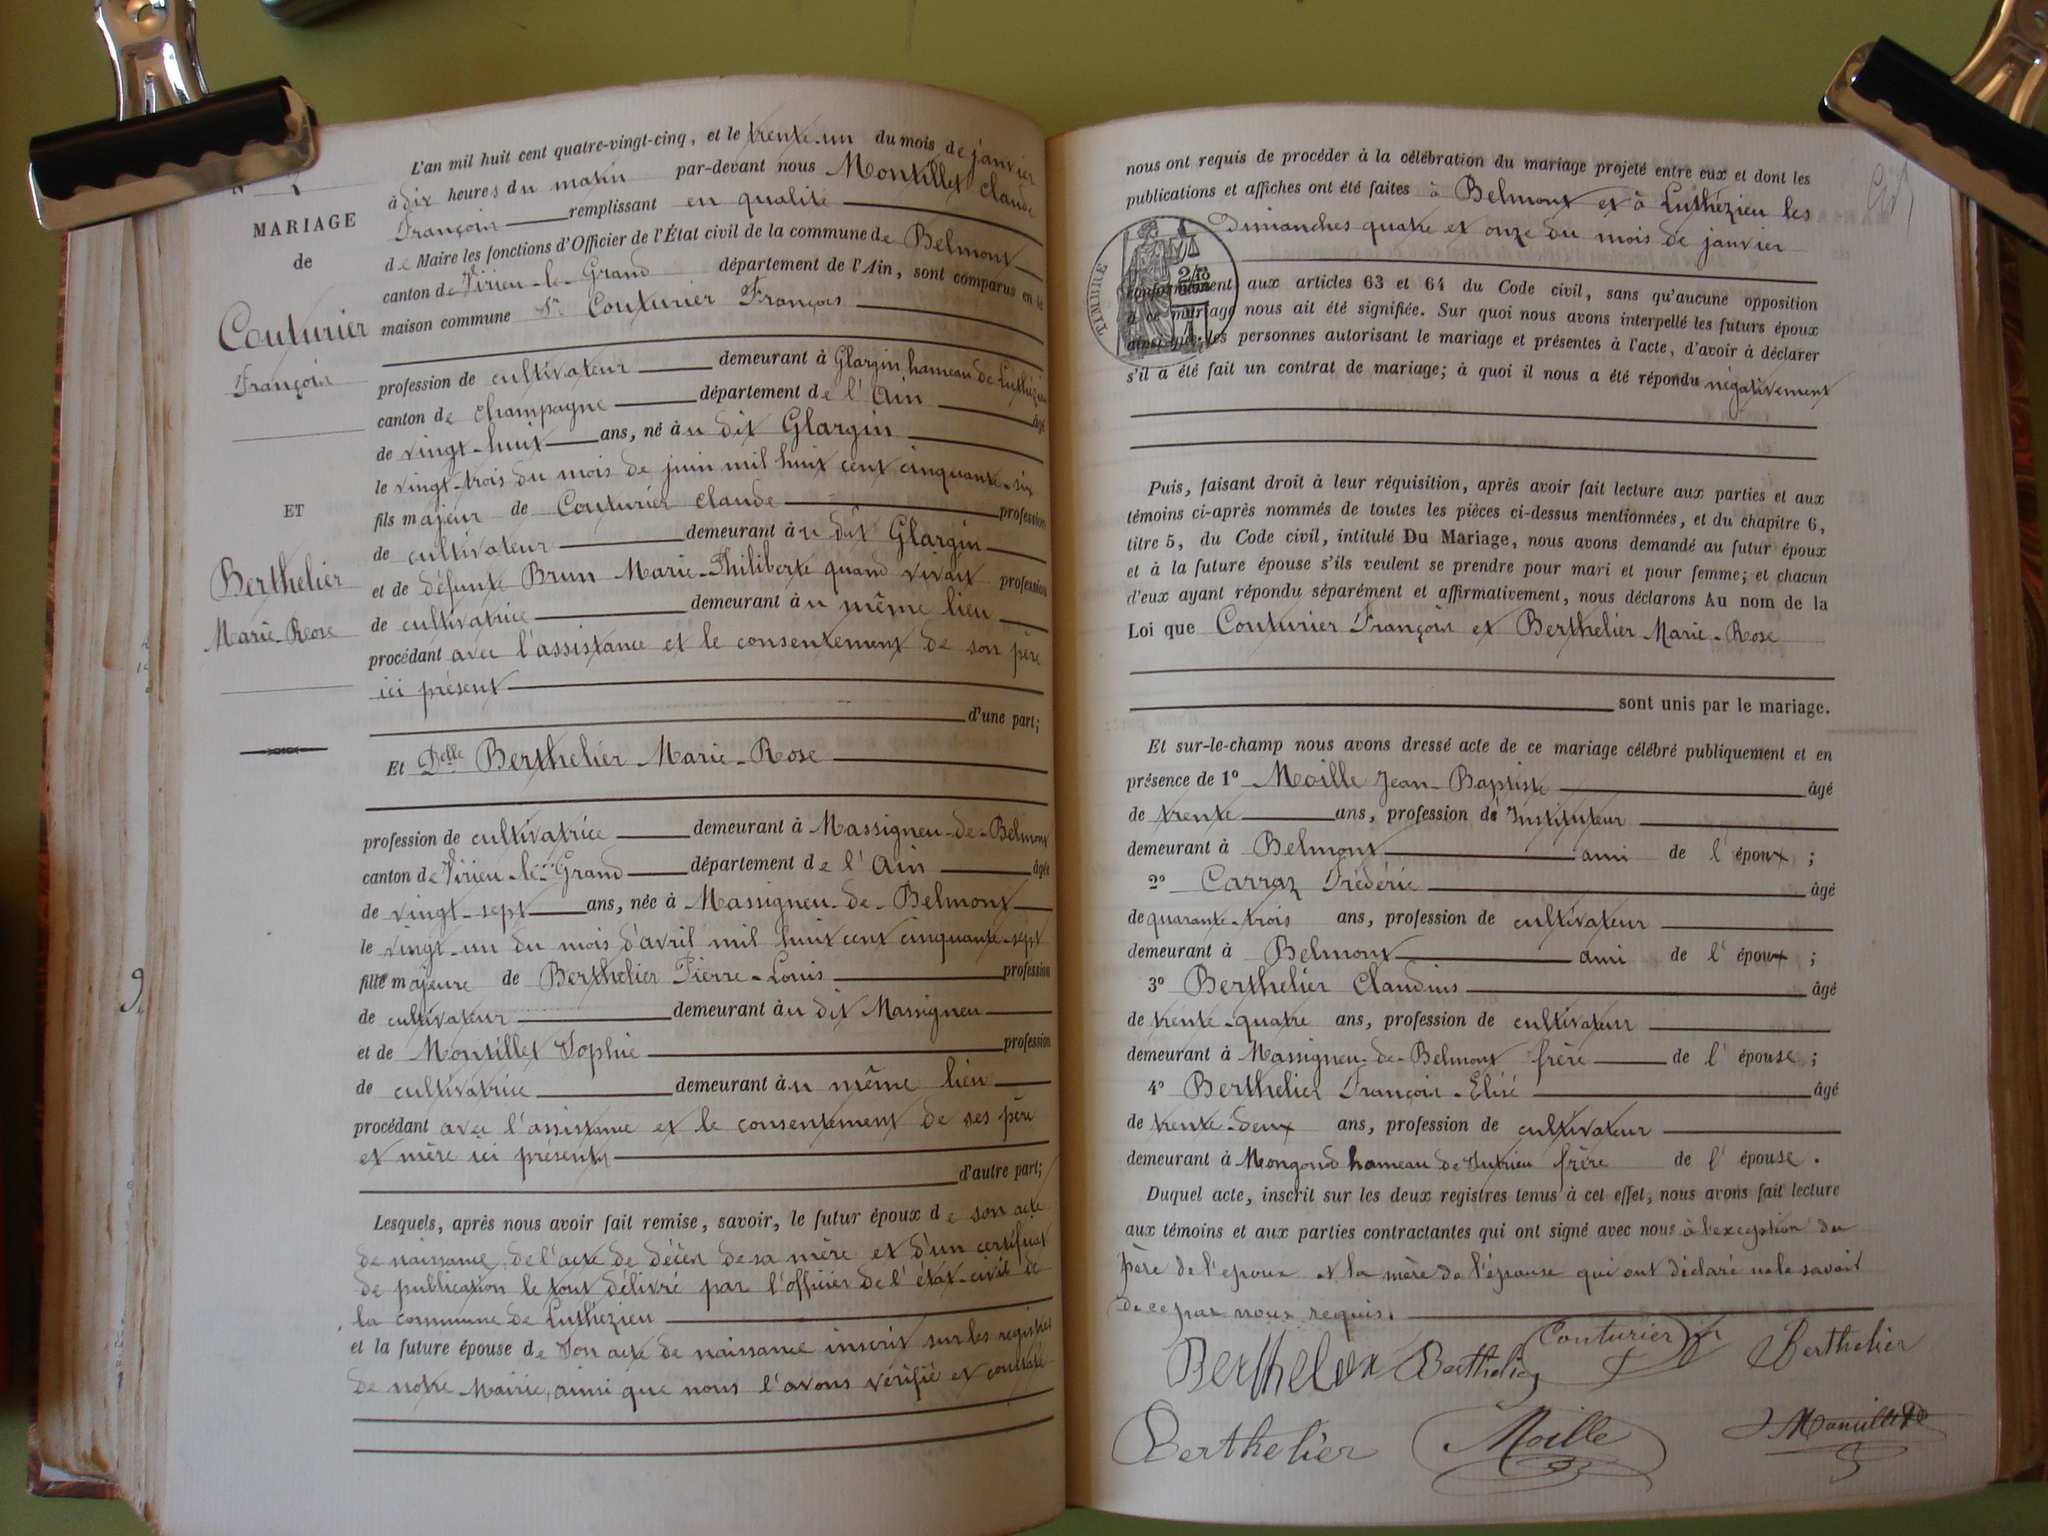 L'an mil huit cent quatre-vingt-cinq, et le trente-un du mois de janvier
à dix heures du matin par-devant nous Montillet Claude
François remplissant en qualité
de Maire les fonctions d'Officier de l'État civil de la commune de Belmont
canton de Virieu-le-Grand département de l'Ain, sont comparus en la
maison commune Sr Couturier François
profession de cultivateur demeurant à Glargin hameau de Luthézieu
canton de Champagne département de l'Ain âgé
de vingt-huit ans, né au dit Glargin
le vingt-trois du mois de juin mil huit cent cinquante-six
fils majeur de Couturier Claude profession
de cultivateur demeurant au dit Glargin
et de défunte Brun Marie-Philiberte quand vivait profession
de cultivatrice demeurant au même lieu
procédant avec l'assistance et le consentement de son père
ici présent
d'une part;
Et Delle Berthelier Marie-Rose
profession de cultivatrice demeurant à Massigneu-de-Belmont
canton de Virieu-le-Grand département de l'Ain âgée
de vingt-sept ans, née à Massigneu-de-Belmont
le vingt-un du mois d'avril mil huit cent cinquante-sept
fille majeure de Berthelier Pierre-Louis profession
de cultivateur demeurant au dit Massigneu
et de Montillet Sophie profession
de cultivatrice demeurant au même lieu
procédant avec l'assistance et le consentement de ses père
et mère ici présents
d'autre part;
Lesquels, après nous avoir fait remise, savoir, le futur époux de son acte
de naissance, de l'acte de décès de sa mère et d'un certificat
de publication le tout délivré par l'officier de l'état-civil de
la commune de Luthézieu
et la future épouse de son acte de naissance inscrit sur les registres
de notre Mairie, ainsi que nous l'avons vérifié et constaté
MARIAGE
de
Couturier
François
ET
Berthelier
Marie-Rose
9
nous ont requis de procéder à la célébration du mariage projeté entre eux et dont les
publications et affiches ont été faites à Belmont et à Luthézieu les
Dimanches quatre et onze du mois de janvier
TIMBRE
conformément aux articles 63 et 64 du Code civil, sans qu'aucune opposition
à ce mariage nous ait été signifiée. Sur quoi nous avons interpellé les futurs époux
ainsi que les personnes autorisant le mariage et présentes à l'acte, d'avoir à déclarer
s'il a été fait un contrat de mariage; à quoi il nous a été répondu négativement
Puis, faisant droit à leur réquisition, après avoir fait lecture aux parties et aux
témoins ci-après nommés de toutes les pièces ci-dessus mentionnées, et du chapitre 6,
titre 5, du Code civil, intitulé Du Mariage, nous avons demandé au futur époux
et à la future épouse s'ils veulent se prendre pour mari et pour femme; et chacun
d'eux ayant répondu séparément et affirmativement, nous déclarons Au nom de la
Loi que Couturier François et Berthelier Marie-Rose
sont unis par le mariage.
Et sur-le-champ nous avons dressé acte de ce mariage célébré publiquement et en
présence de 1° Moille Jean-Baptiste âgé
de trente ans, profession d'Instituteur
demeurant à Belmont ami de l'époux;
2° Carraz Frédéric âgé
de quarante-trois ans, profession de cultivateur
demeurant à Belmont ami de l'époux;
3° Berthelier Claudius âgé
de trente-quatre ans, profession de cultivateur
demeurant à Massigneu-de-Belmont frère de l'épouse;
4° Berthelier François-Elisé âgé
de trente-deux ans, profession de cultivateur
demeurant à Mongonod hameau de Sutrieu frère de l'épouse.
Duquel acte, inscrit sur les deux registres tenus à cet effet, nous avons fait lecture
aux témoins et aux parties contractantes qui ont signé avec nous à l'exception du
père de l'époux et la mère de l'épouse qui ont déclaré ne le savoir
de ce par nous requis.
Couturier Berthelier
Berthelier Moille